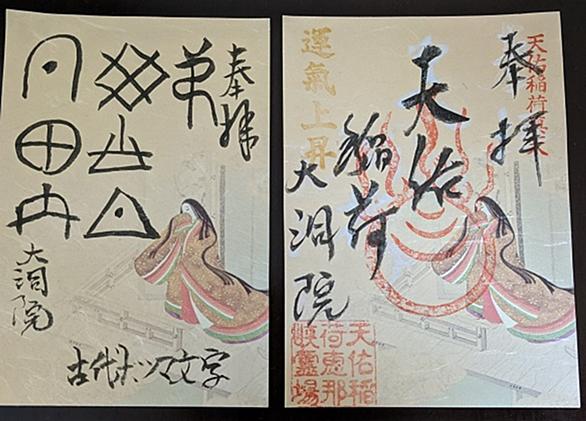 奉拝
大洞院
古代ホツマ文字
天佑稲荷
奉拝
天佑
稲荷
運氣上昇
大洞院
天佑稲
荷恵那
峡靈場